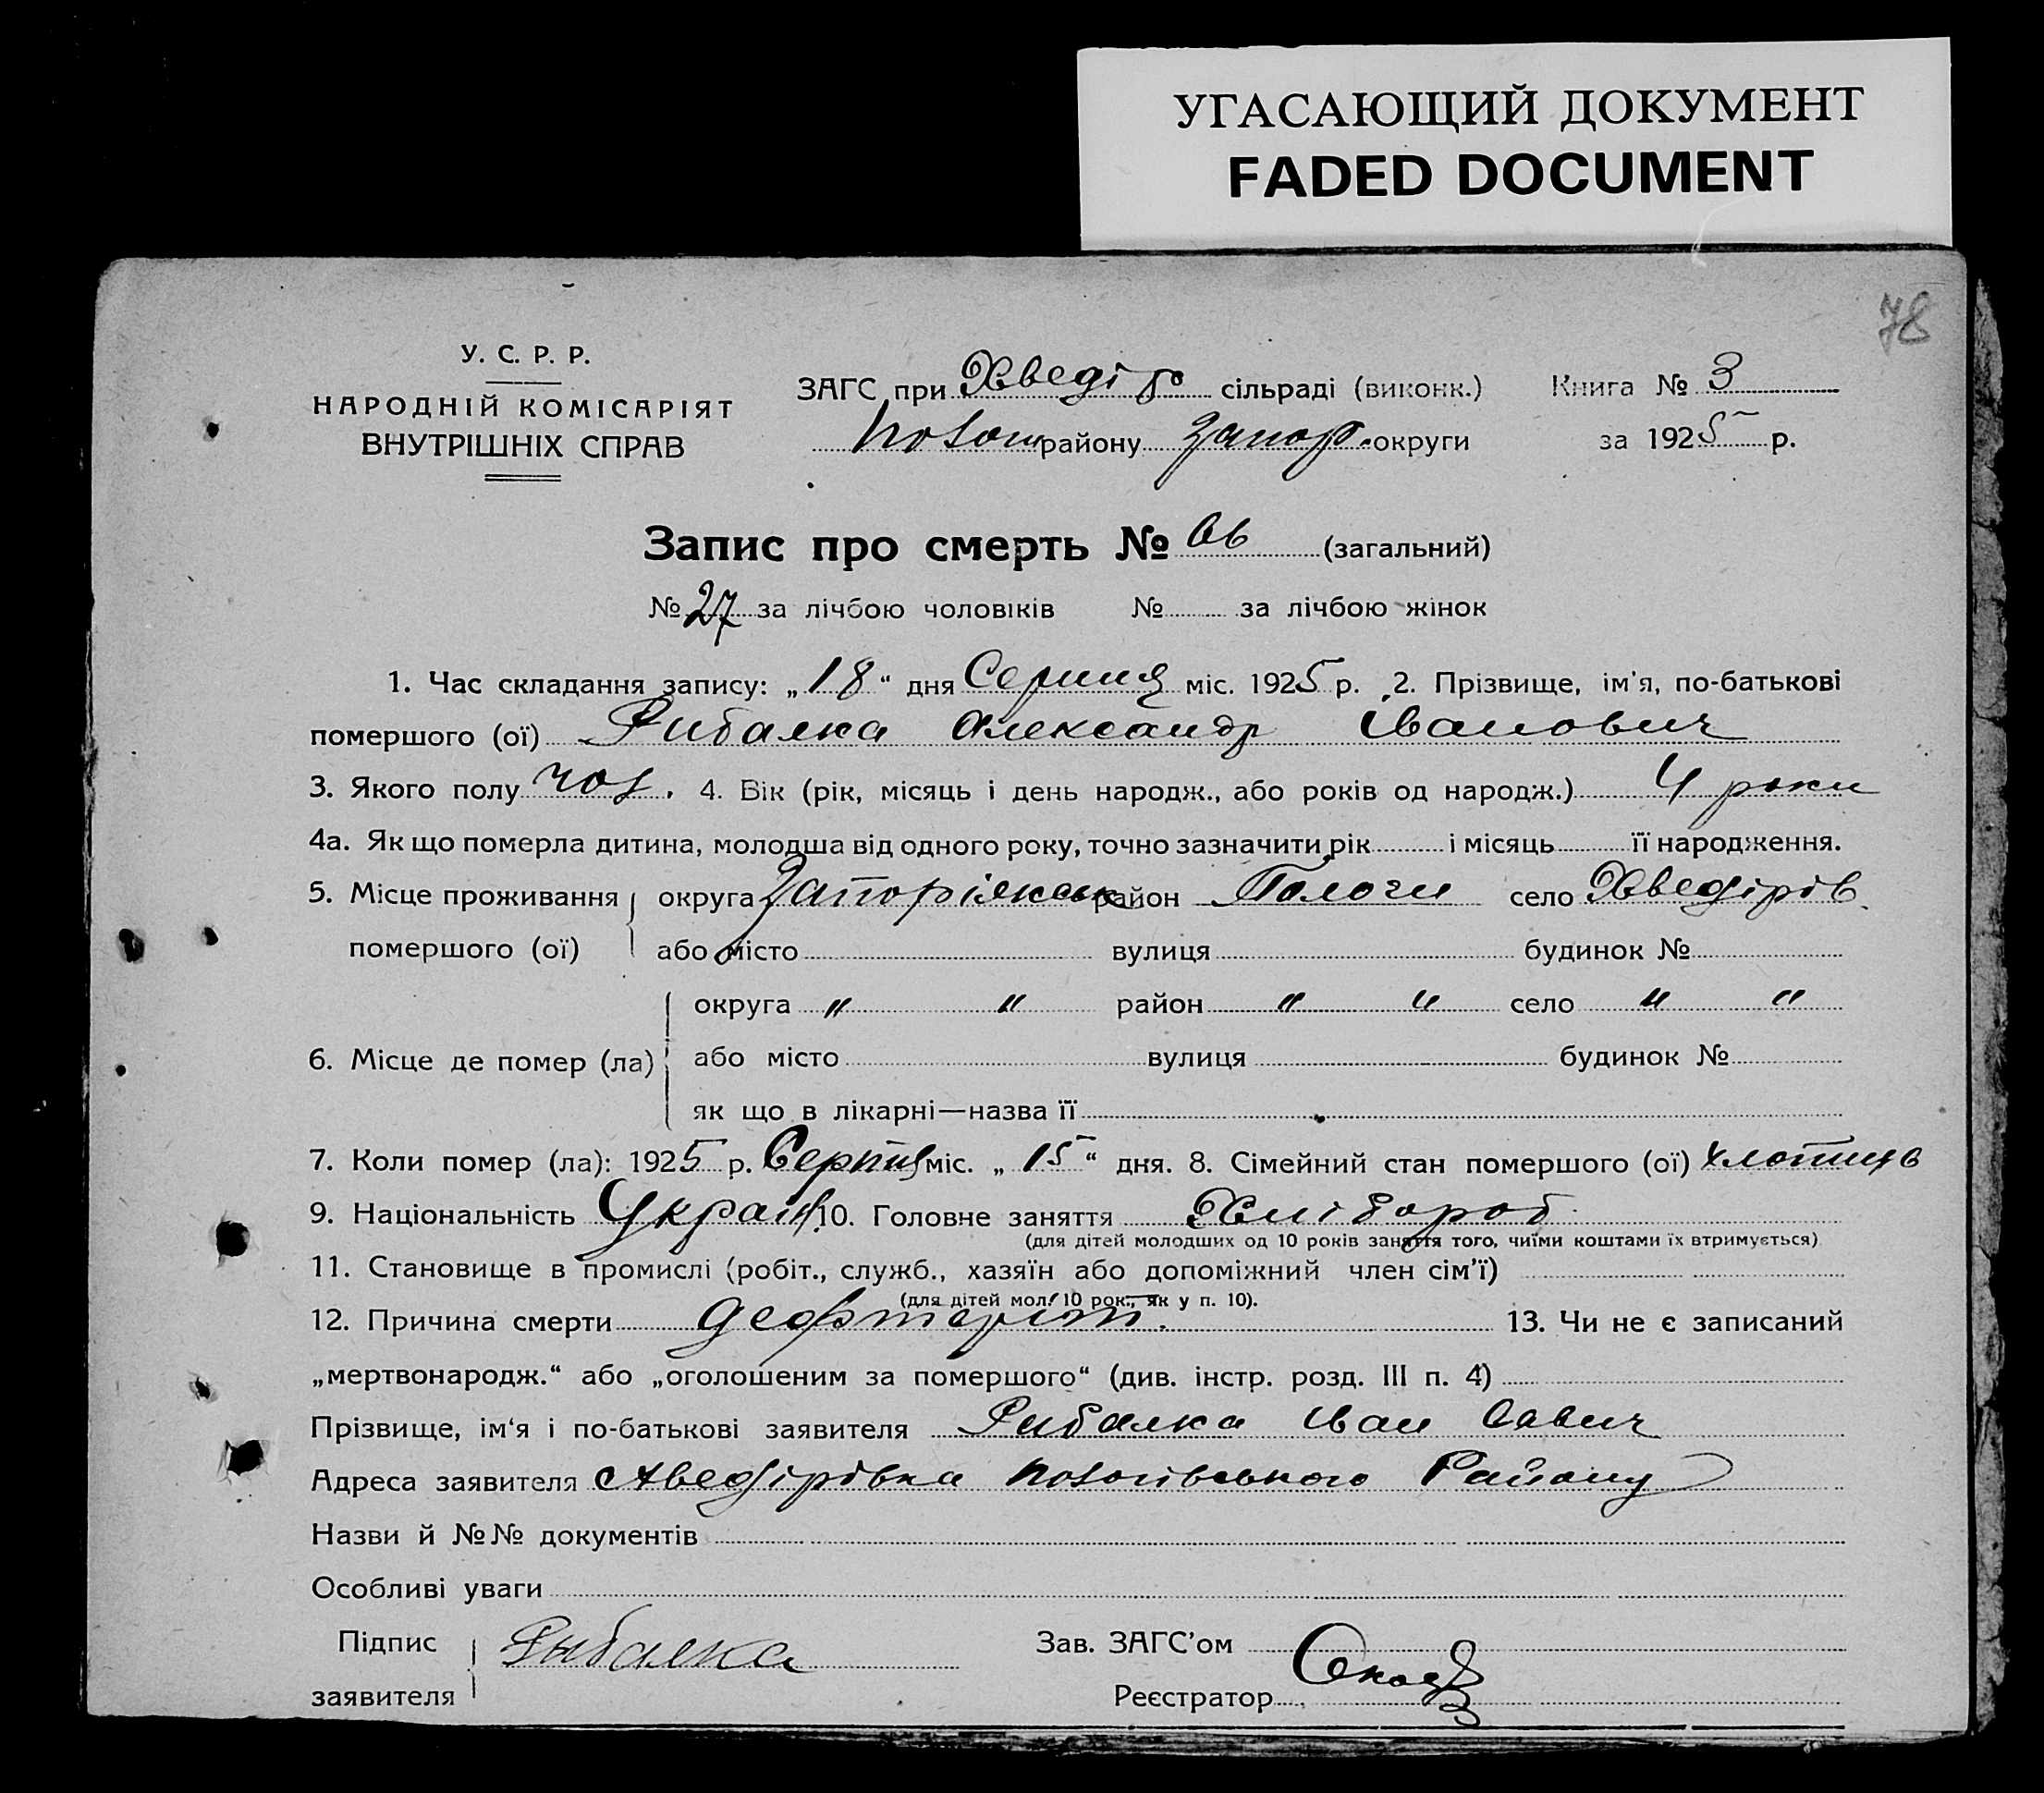 УГАСАЮЩИЙ ДОКУМЕНТ
FADED DOCUMENT
78
У. С. Р. Р.
НАРОДНІЙ КОМІСАРІЯТ
ВНУТРІШНІХ СПРАВ
ЗАГС при Хведір сільраді (виконк.) Книга № 3
району Запор. округи за 1925 р.
Запис про смерть № (загальний)
№ 27 за лічбою чоловіків № за лічбою жінок
1. Час складання запису: „18“ дня Серпня міс. 1925 р. 2. Прізвище, ім'я, по-батькові
помершого (ої) Рибалка Александр Іванович
3. Якого полу чол. 4. Вік (рік, місяць і день народж., або років од народж.) 4 роки
4а. Як що померла дитина, молодша від одного року, точно зазначити рік і місяць її народження.
5. Місце проживання округа Запоріжськ район Пологи село Хведірів.
помершого (ої) або місто вулиця будинок №
округа " " район " " село " "
6. Місце де помер (ла) або місто вулиця будинок №
як що в лікарні—назва її
7. Коли помер (ла): 1925 р. Серпня міс. „15“ дня. 8. Сімейний стан помершого (ої) Хлопець
9. Національність Україн. 10. Головне заняття Хлібороб
(для дітей молодших од 10 років заняття того, чиїми коштами їх втримується)
11. Становище в промислі (робіт., служб., хазяїн або допоміжний член сім'ї)
(для дітей мол. 10 рок., як у п. 10).
12. Причина смерти дефтеріт. 13. Чи не є записаний
„мертвонародж.“ або „оголошеним за помершого“ (див. інстр. розд. III п. 4)
Прізвище, ім‘я і по-батькові заявителя Рибалка Іван Савич
Адреса заявителя Хведірівка Пологівського Району
Назви й №№ документів
Особливі уваги
Підпис Рыбалка Зав. ЗАГС’ом
заявителя Реєстратор